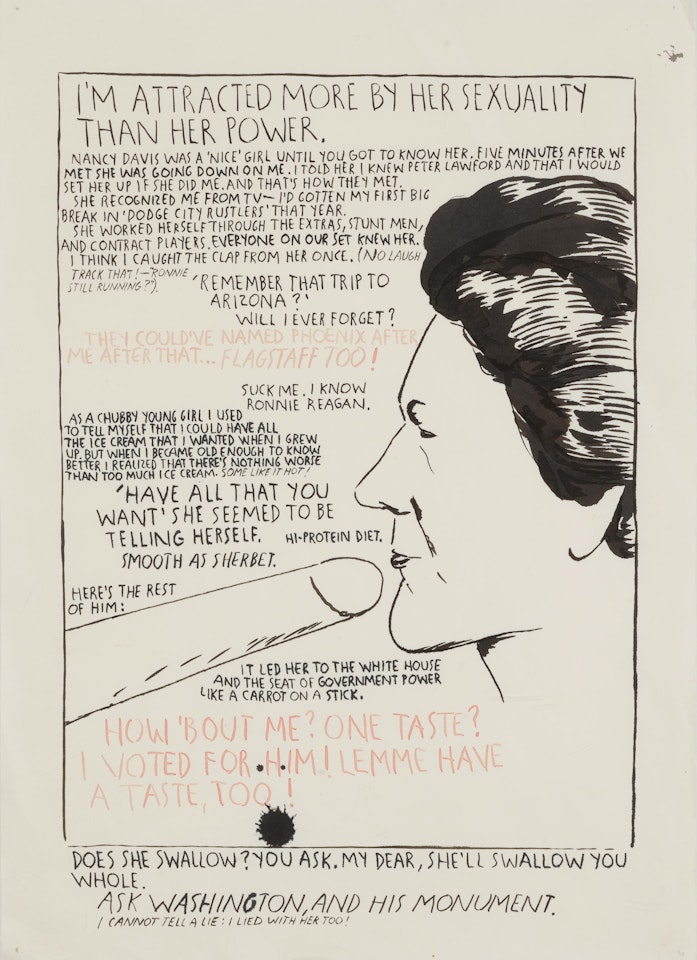 I'M ATTRACTED MORE BY HER SEXUALITY
THAN HER POWER.
NANCY DAVIS WAS A 'NICE' GIRL UNTIL YOU GOT TO KNOW HER. FIVE MINUTES AFTER WE
MET SHE WAS GOING DOWN ON ME. I TOLD HER I KNEW PETER LAWFORD AND THAT I WOULD
SET HER UP IF SHE DID ME. AND THAT'S HOW THEY MET.
SHE RECOGNIZED ME FROM TV— I'D GOTTEN MY FIRST BIG
BREAK IN 'DODGE CITY RUSTLERS' THAT YEAR.
SHE WORKED HERSELF THROUGH THE EXTRAS, STUNT MEN,
AND CONTRACT PLAYERS. EVERYONE ON OUR SET KNEW HER.
I THINK I CAUGHT THE CLAP FROM HER ONCE. (NO LAUGH
TRACK THAT!—'RONNIE
STILL RUNNING?').
'REMEMBER THAT TRIP TO
ARIZONA?'
WILL I EVER FORGET?
THEY COULD'VE NAMED PHOENIX AFTER
ME AFTER THAT... FLAGSTAFF TOO!
SUCK ME. I KNOW
RONNIE REAGAN.
AS A CHUBBY YOUNG GIRL I USED
TO TELL MYSELF THAT I COULD HAVE ALL
THE ICE CREAM THAT I WANTED WHEN I GREW
UP. BUT WHEN I BECAME OLD ENOUGH TO KNOW
BETTER I REALIZED THAT THERE'S NOTHING WORSE
THAN TOO MUCH ICE CREAM. SOME LIKE IT HOT!
'HAVE ALL THAT YOU
WANT' SHE SEEMED TO BE
TELLING HERSELF. HI-PROTEIN DIET.
SMOOTH AS SHERBET.
HERE'S THE REST
OF HIM:
IT LED HER TO THE WHITE HOUSE
AND THE SEAT OF GOVERNMENT POWER
LIKE A CARROT ON A STICK.
HOW 'BOUT ME? ONE TASTE?
I VOTED FOR HIM! LEMME HAVE
A TASTE, TOO!
DOES SHE SWALLOW? YOU ASK. MY DEAR, SHE'LL SWALLOW YOU
WHOLE.
ASK WASHINGTON, AND HIS MONUMENT.
I CANNOT TELL A LIE: I LIED WITH HER TOO!